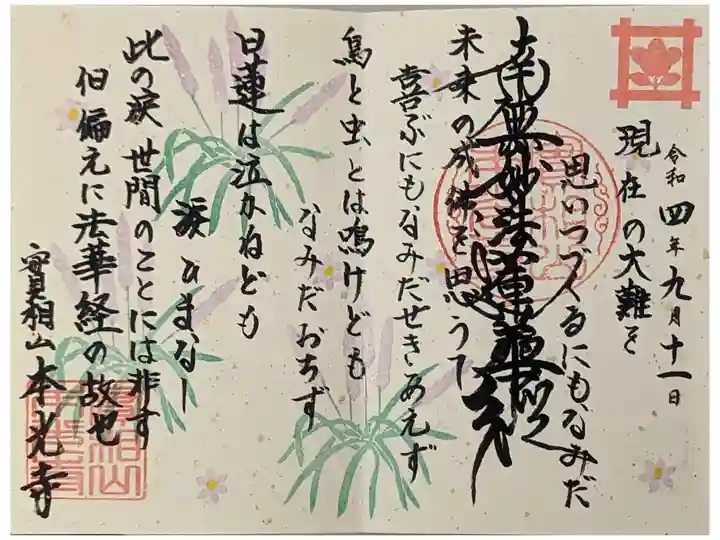 令和四年九月十一日
現在の大難を
思いつづくるにもなみだ
南無妙法蓮華経
未来の成仏を思うて
喜ぶにもなみだせきあえず
鳥と虫とは鳴けども
なみだおちず
日蓮は泣かねども
涙ひまなし
此の涙世間のことには非ず
但偏えに法華経の故也
實相山本光寺